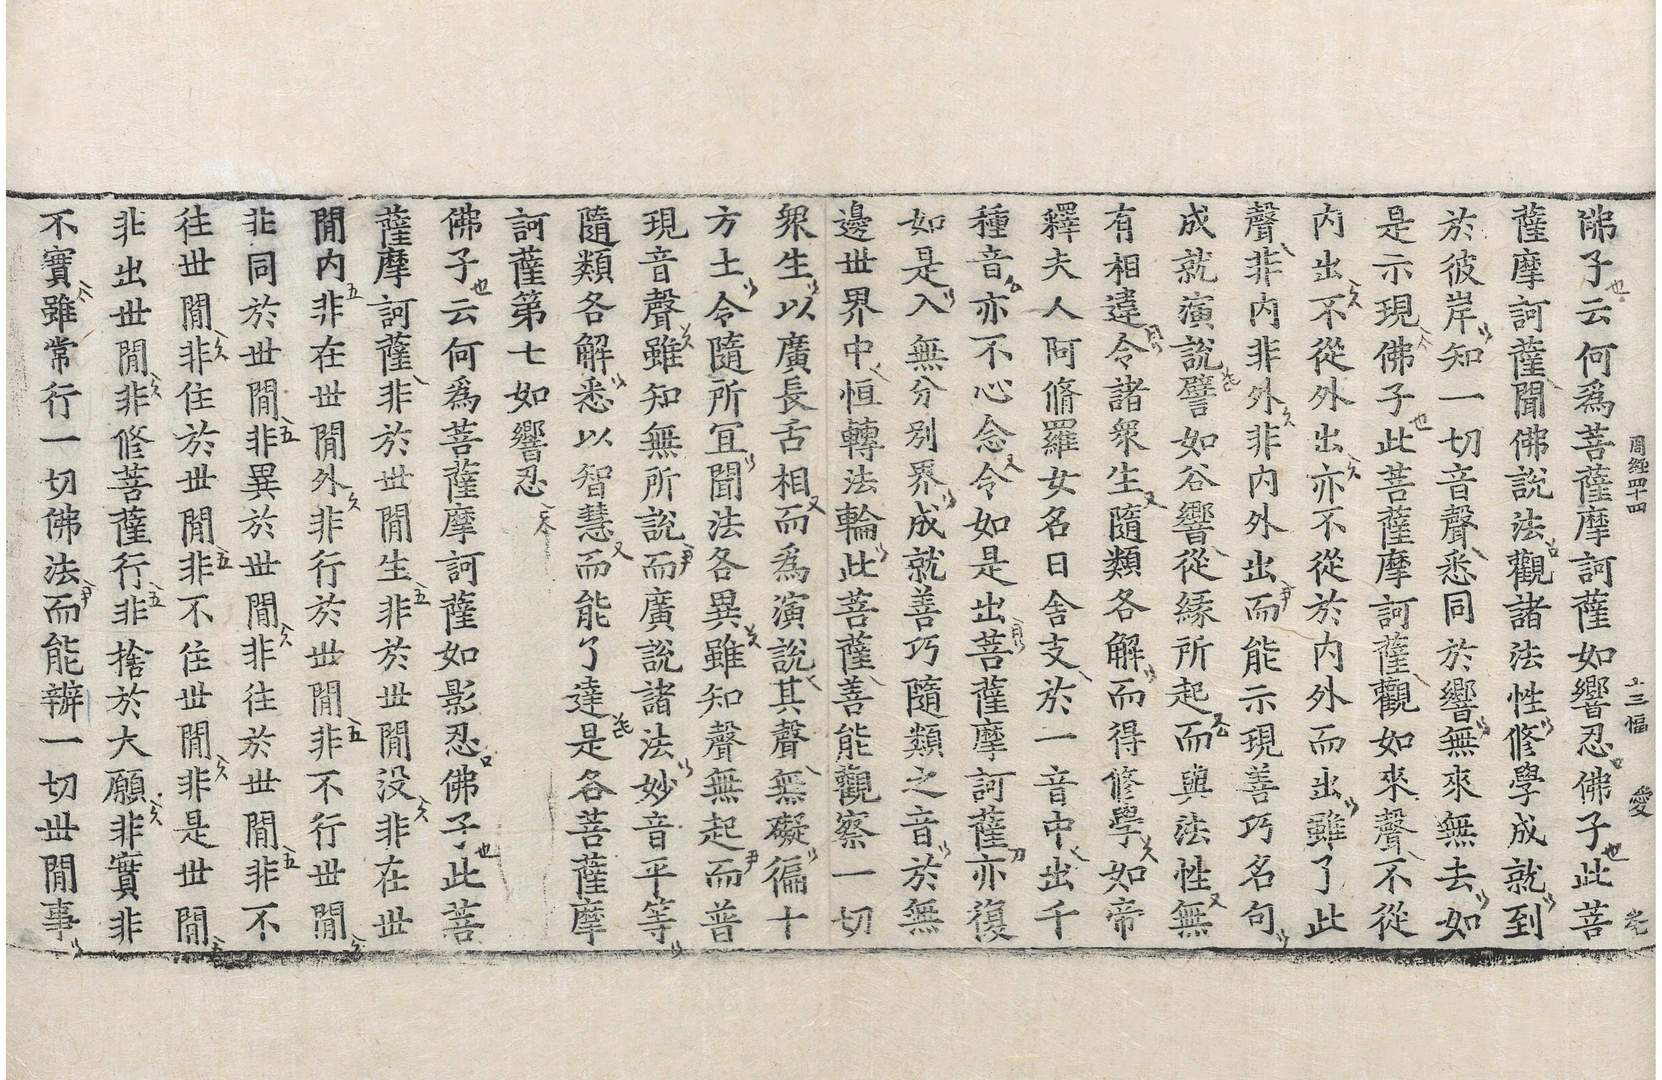 周經四十四 十三幅 愛
佛子云何爲菩薩摩訶薩如響忍佛子此菩
薩摩訶薩聞佛說法觀諸法性修學成就到
於彼岸知一切音聲悉同於響無來無去如
是示現佛子此菩薩摩訶薩觀如來聲不從
內出不從外出亦不從於內外而出雖了此
聲非內非外非內外出而能示現善巧名句
成就演說譬如谷響從緣所起而與法性無
有相違令諸衆生隨類各解而得修學如帝
釋夫人阿脩羅女名曰舍支於一音中出千
種音亦不心念令如是出菩薩摩訶薩亦復
如是入無分別界成就善巧隨類之音於無
邊世界中恒轉法輪此菩薩善能觀察一切
衆生以廣長舌相而爲演說其聲無礙徧十
方土令隨所宜聞法各異雖知聲無起而普
現音聲雖知無所說而廣說諸法妙音平等
隨類各解悉以智慧而能了達是各菩薩摩
訶薩第七如響忍
佛子云何爲菩薩摩訶薩如影忍佛子此菩
薩摩訶薩非於世閒生非於世閒没非在世
閒內非在世閒外非行於世閒非不行世閒
非同於世閒非異於世閒非往於世閒非不
往世閒非住於世閒非不住世閒非是世閒
非出世閒非修菩薩行非捨於大願非實非
不實雖常行一切佛法而能辦一切世閒事